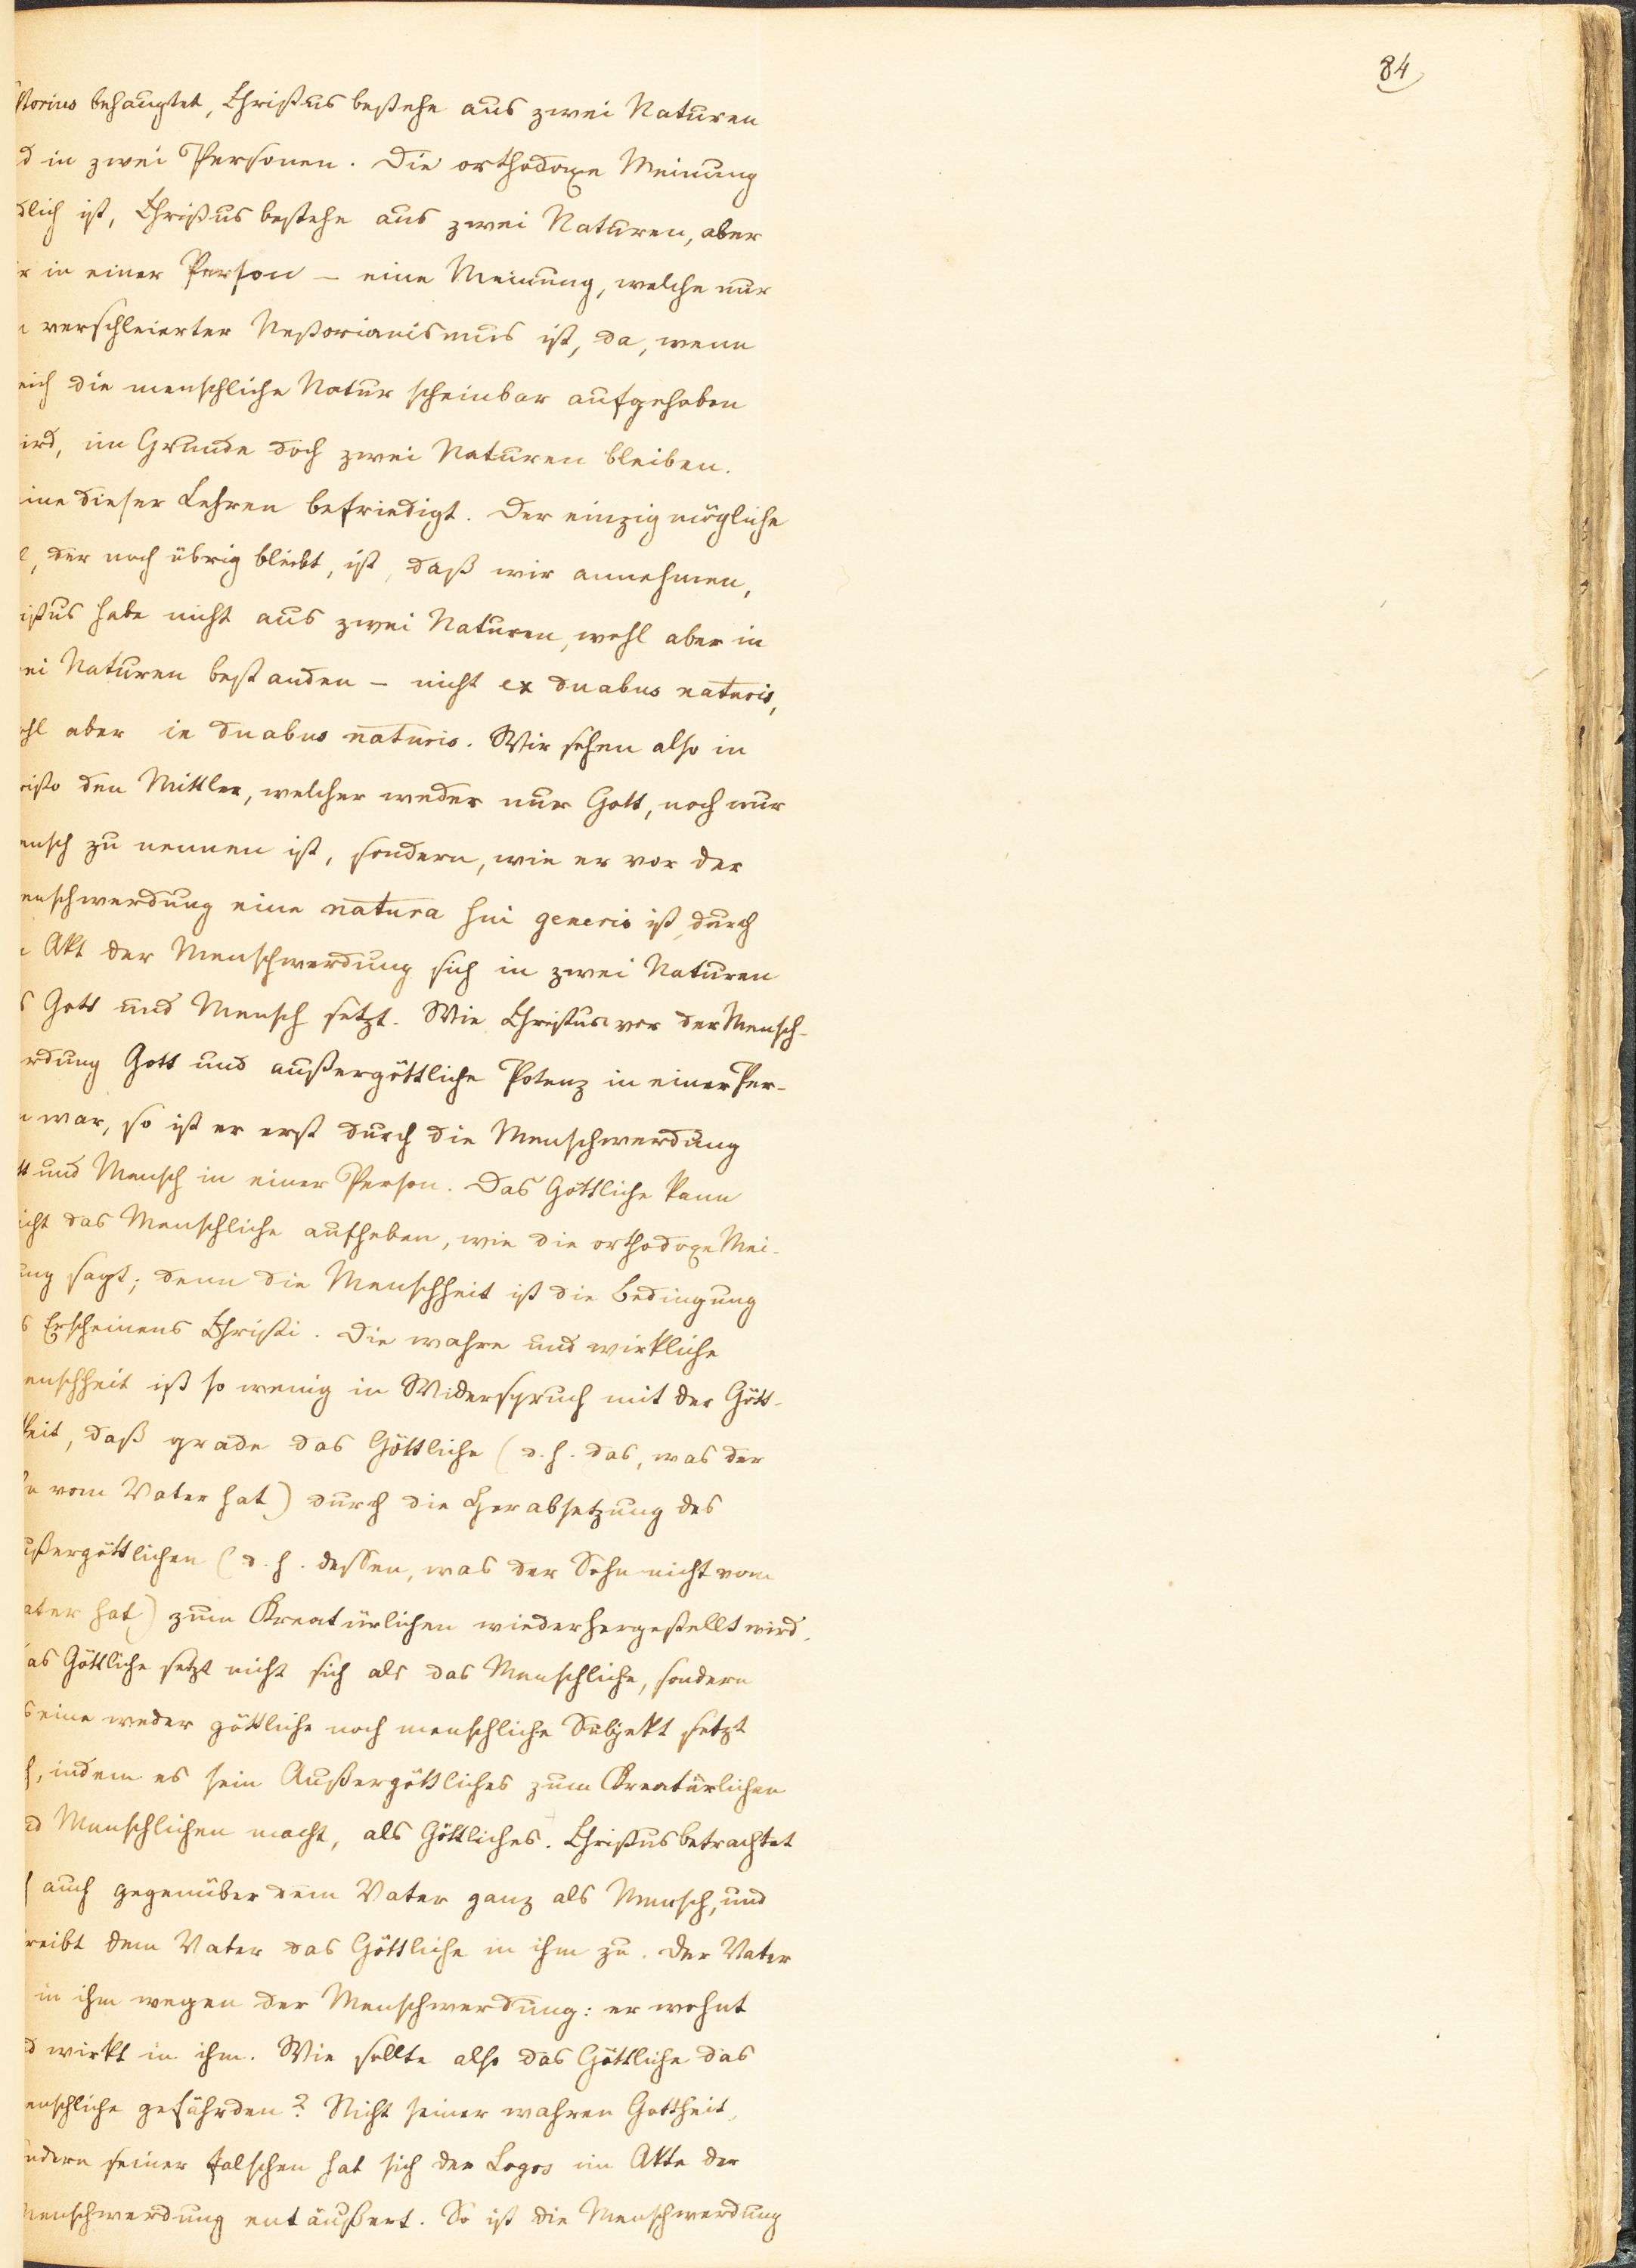 84
storius behauptet, Christus bestehe aus zwei Naturen
d in zwei Personen. Die orthodoxe Meinung
dlich ist, Christus bestehe aus zwei Naturen, aber
r in einer Person – eine Meinung, welche nur
n verschleierter Nestorianismus ist, da, wenn
eich die menschliche Natur scheinbar aufgehoben
ird, im Grunde doch zwei Naturen bleiben.
ine dieser Lehren befriedigt. Der einzig mögliche
l, der noch übrig bleibt, ist, daß wir annehmen,
istus habe nicht aus zwei Naturen, wohl aber in
ei Naturen bestanden – nicht ex duabus naturis,
ohl aber in duabus naturis. Wir sehen also in
risto den Mittler, welcher weder nur Gott, noch nur
ensch zu nennen ist, sondern, wie er vor der
enschwerdung eine natura sui generis ist, durch
n Akt der Menschwerdung sich in zwei Naturen
s Gott und Mensch setzt. Wie Christus vor der Mensch-
rdung Gott und außergöttliche Potenz in einer Per-
n war, so ist er erst durch die Menschwerdung
tt und Mensch in einer Person. Das Göttliche kann
icht das Menschliche aufheben, wie die orthodoxe Mei-
ung sagt; denn die Menschheit ist die Bedingung
s Erscheinens Christi. Die wahre und wirkliche
enschheit ist so wenig in Widerspruch mit der Gött-
keit, daß grade das Göttliche (d. h. das, was der
hn vom Vater hat) durch die Herabsetzung des
ußergöttlichen (d. h. dessen, was der Sohn nicht vom
ater hat) zum Kreatürlichen wiederhergestellt wird.
as Göttliche setzt nicht sich als das Menschliche, sondern
s eine weder göttliche noch menschliche Subjekt setzt
h, indem es sein Außergöttliches zum Kreatürlichen
nd Menschlichen macht, als Göttliches. Christus betrachtet
h auch gegenüber dem Vater ganz als Mensch, und
reibt dem Vater das Göttliche in ihm zu. Der Vater
in ihm wegen der Menschwerdung: er wohnt
d wirkt in ihm. Wie sollte also das Göttliche das
enschliche gefährden? Nicht seiner wahren Gottheit,
ndern seiner falschen hat sich der Logos im Akte der
Menschwerdung entäußert. So ist die Menschwerdung